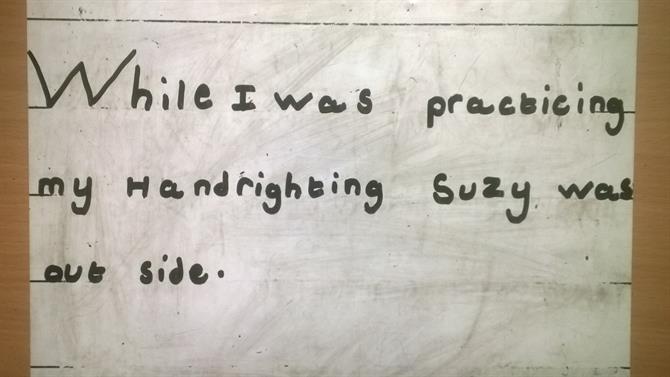 While I was practicing
my Handrighting Suzy was
out side.